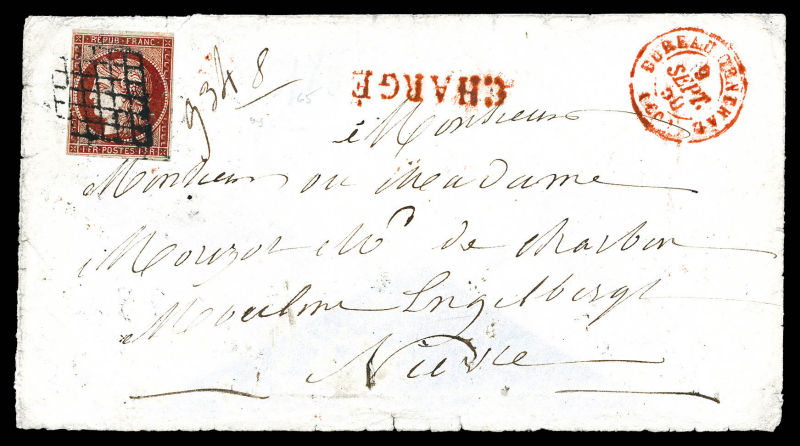 REPUB.FRANC.
1 FR. POSTES 1 FR
9348
CHARGÉ
BUREAU GÉNÉRAL
9
SEPT.
50
à Monsieur
Monsieur ou Madame
Mouzot Md de charbon
Engelbergt